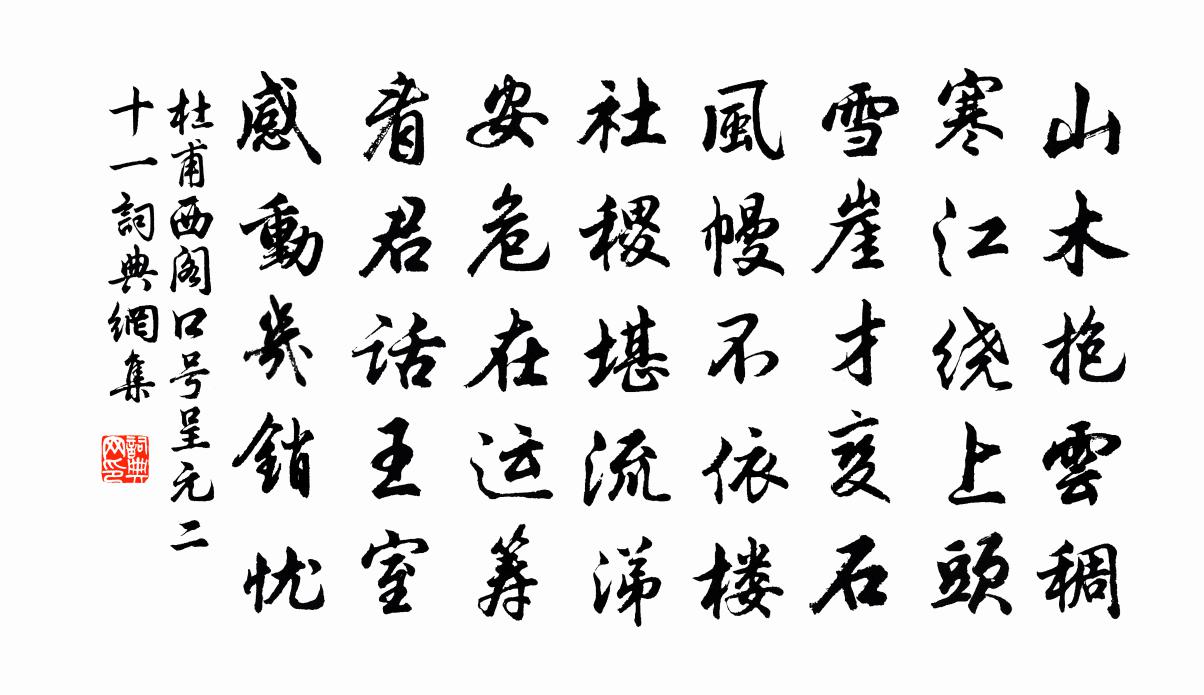 山木抱雲稠
寒江绕上頭
雪崖才变石
風幔不依楼
社稷堪流涕
安危在运筹
看君话王室
感動幾銷忧
杜甫西阁口号呈元二
十一詞典網集
詞典
网印